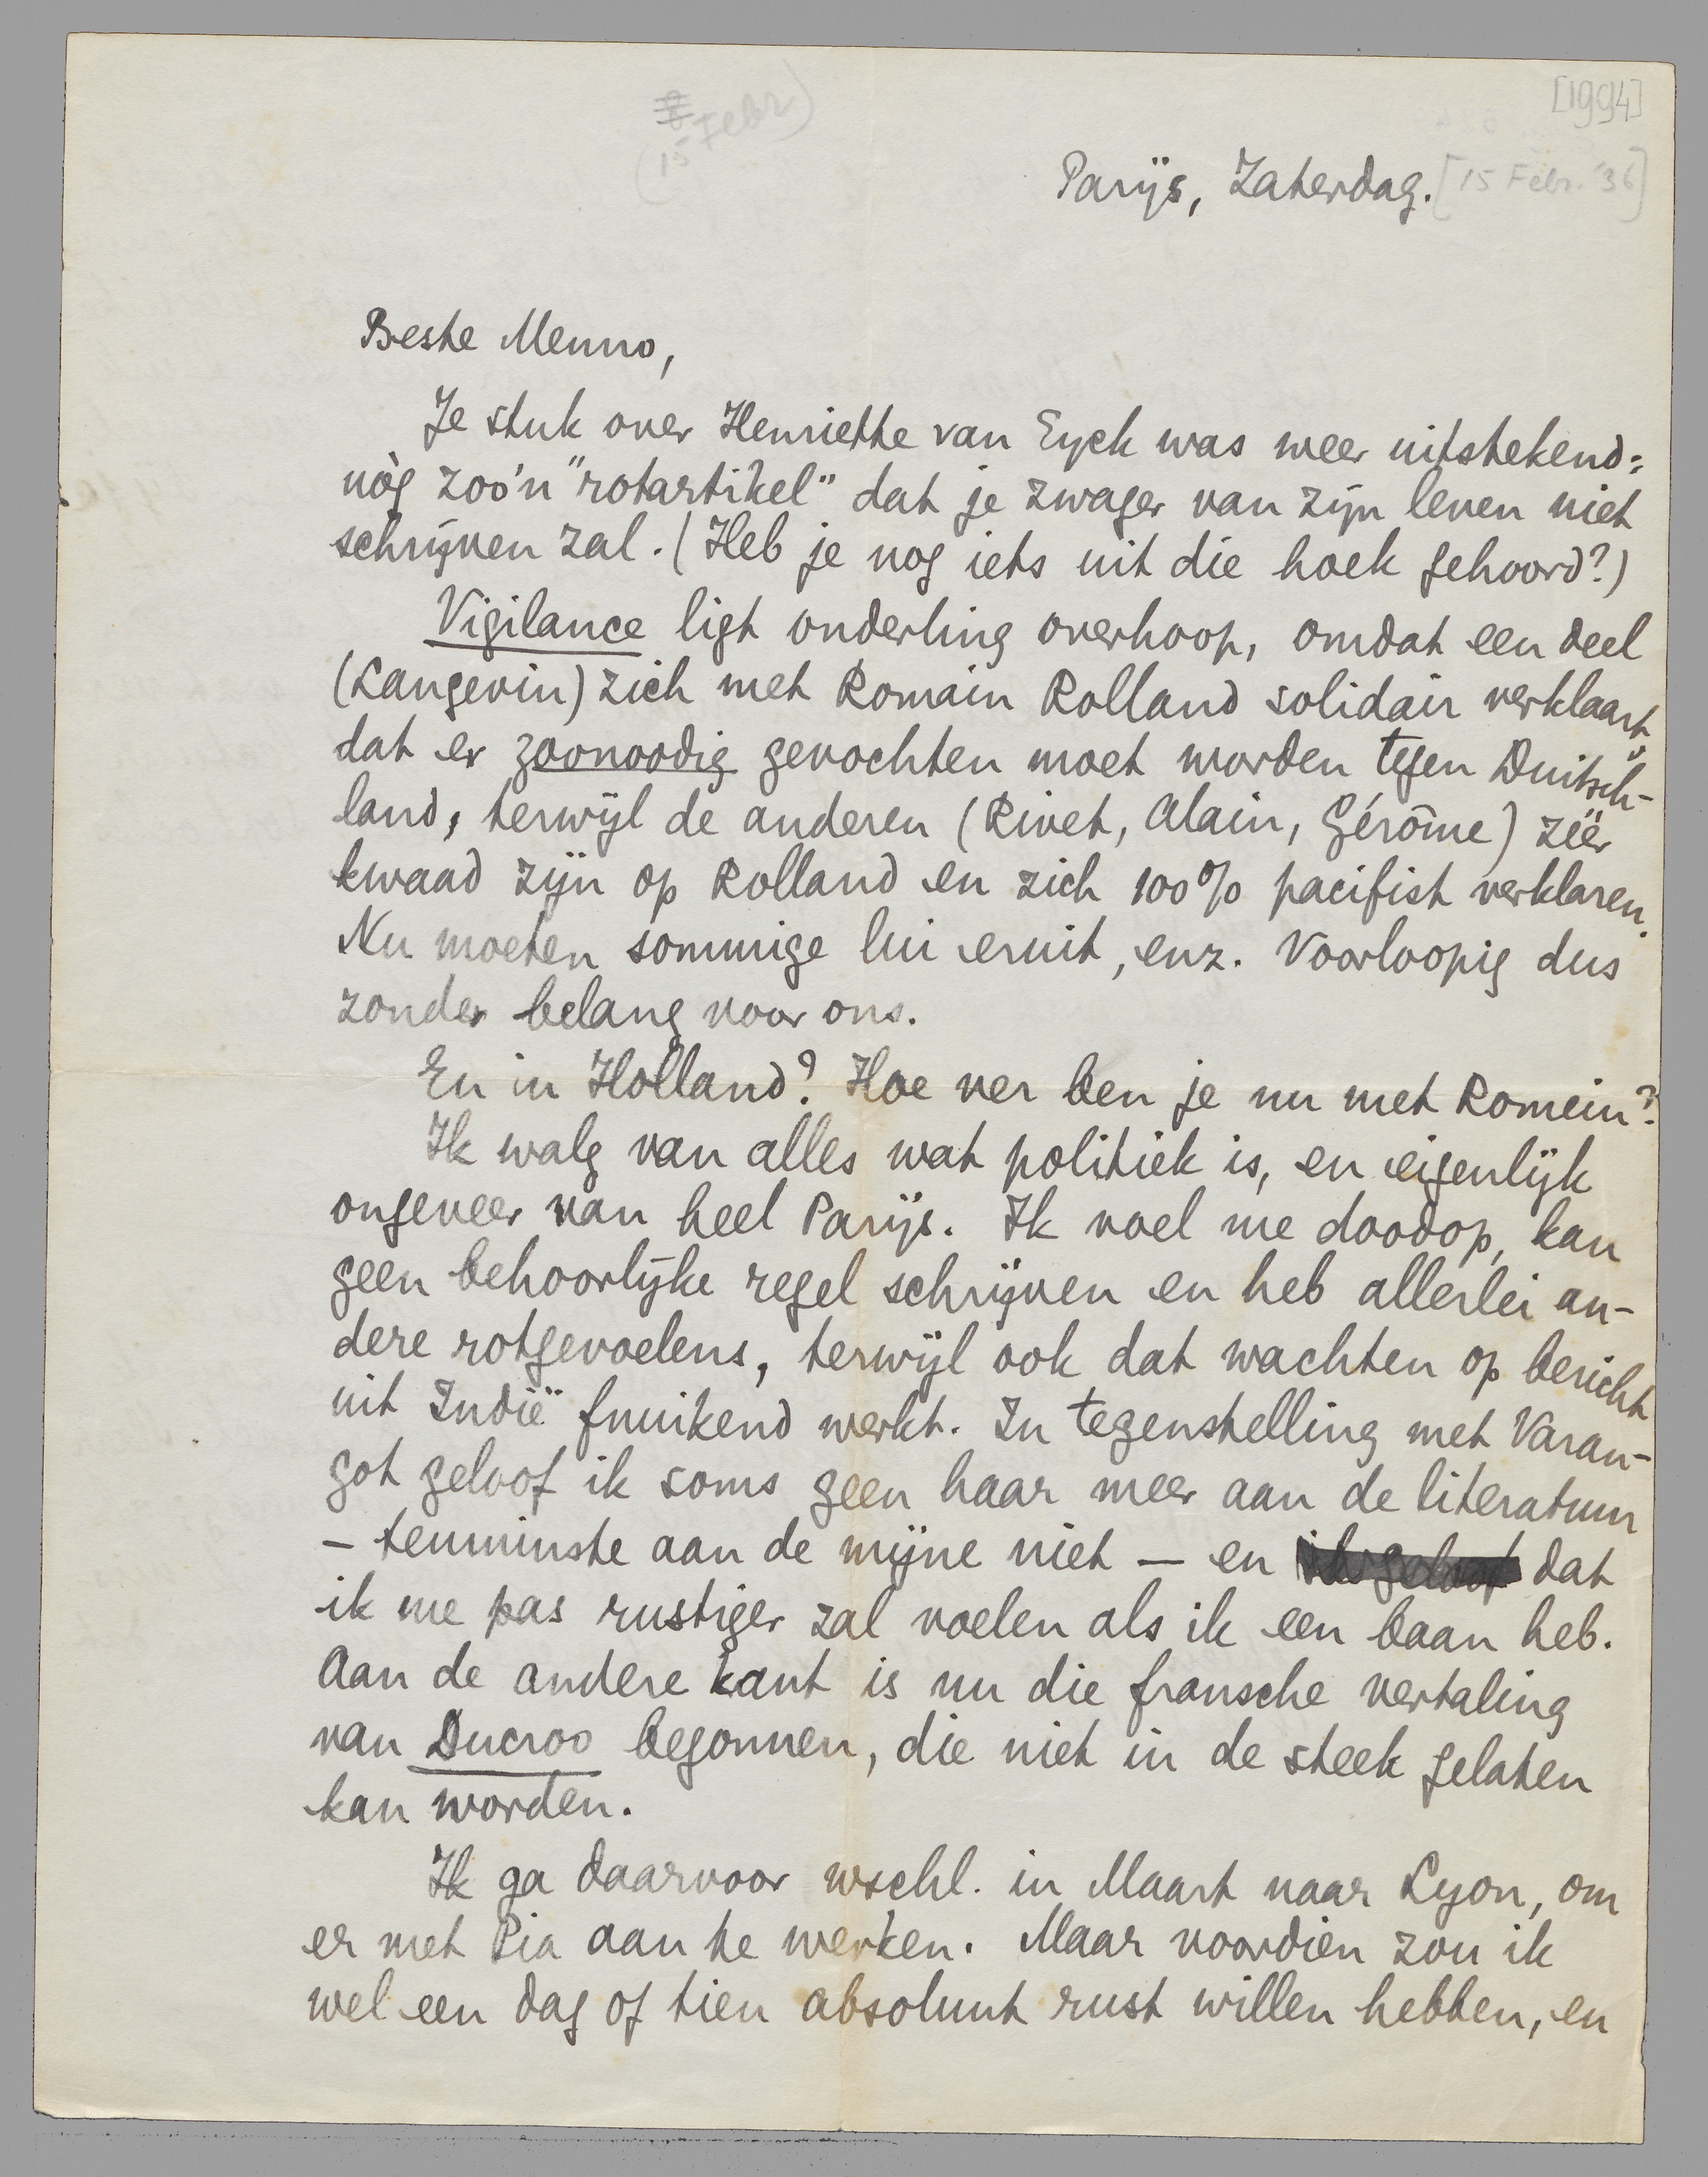 [1994]
(15 Febr)
Parijs, Zaterdag. [15 Febr. '36]
Beste Menno,
Je stuk over Henriette van Eyck was weer uitstekend:
nòg zoo'n "rotartikel" dat je zwager van zijn leven niet
schrijven zal. (Heb je nog iets uit die hoek gehoord?)
Vigilance ligt onderling overhoop, omdat een deel
(Langevin) zich met Romain Rolland solidair verklaart,
dat er zoonoodig gevochten moet worden tegen Duitsch-
land, terwijl de anderen (Rivet, Alain, Gérôme) zéér
kwaad zijn op Rolland en zich 100% pacifist verklaren.
Nu moeten sommige lui eruit, enz. Voorloopig dus
zonder belang voor ons.
En in Holland? Hoe ver ben je nu met Romein?
Ik walg van alles wat politiek is, en eigenlijk
ongeveer van heel Parijs. Ik voel me doodop, kan
geen behoorlijke regel schrijven en heb allerlei an-
dere rotgevoelens, terwijl ook dat wachten op bericht
uit Indië fnuikend werkt. In tegenstelling met Varan-
got geloof ik soms geen haar meer aan de literatuur
- tenminste aan de mijne niet - en ik geloof dat
ik me pas rustiger zal voelen als ik een baan heb.
Aan de andere kant is nu die fransche vertaling
van Ducroo begonnen, die niet in de steek gelaten
kan worden.
Ik ga daarvoor wschl. in Maart naar Lyon, om
er met Pia aan te werken. Maar voordien zou ik
wel een dag of tien absoluut rust willen hebben, en